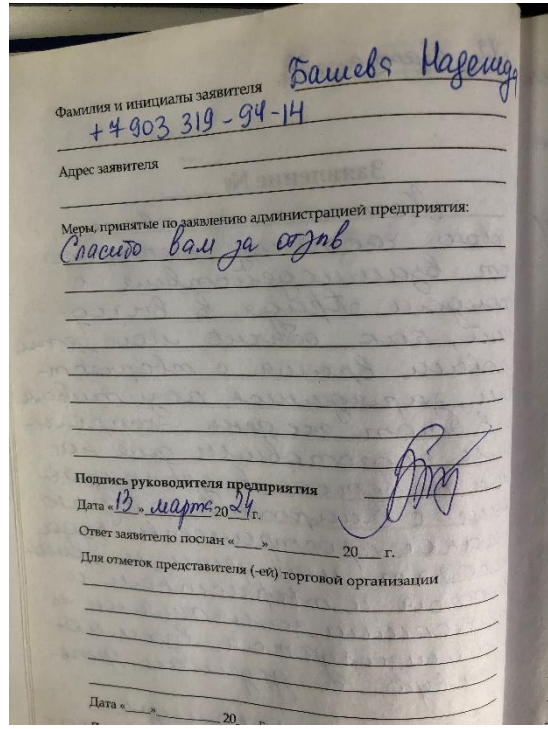 Башева Надежда
Фамилия и инициалы заявителя
+7 903 319-94-14
Адрес заявителя
Меры, принятые по заявлению администрацией предприятия:
Спасибо вам за отзыв
Подпись руководителя предприятия
Дата «13» марта 2024 г.
Ответ заявителю послан «___»__________ 20___ г.
Для отметок представителя (-ей) торговой организации
Дата «___»__________ 20___ г.